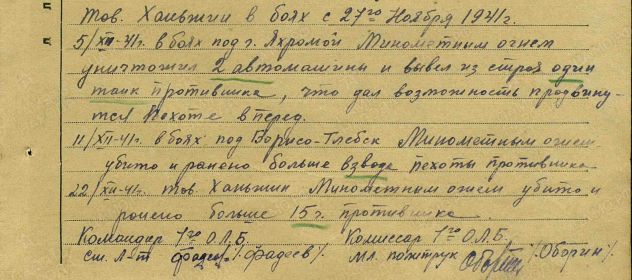 тов. Ханьжин в боях с 27го Ноября 1941г.
5/XII-41г. в боях под г. Яхромой Минометным огнем
уничтожил 2 автомашины и вывел из строя один
танк противника, что дал возможность продвину-
тся Пехоте вперед.
11/XII-41г. в боях под Борисо-Глебск Минометным огнем
убито и ранено больше взвода пехоты противника
22/XII-41г. тов. Ханьжин Минометным огнем убито и
ранено больше 15 г. противника.
Командир 7го ОЛБ. Комиссар 7го ОЛБ.
см. Л-т /Фадеев/. мл. политрук /Оборин/.